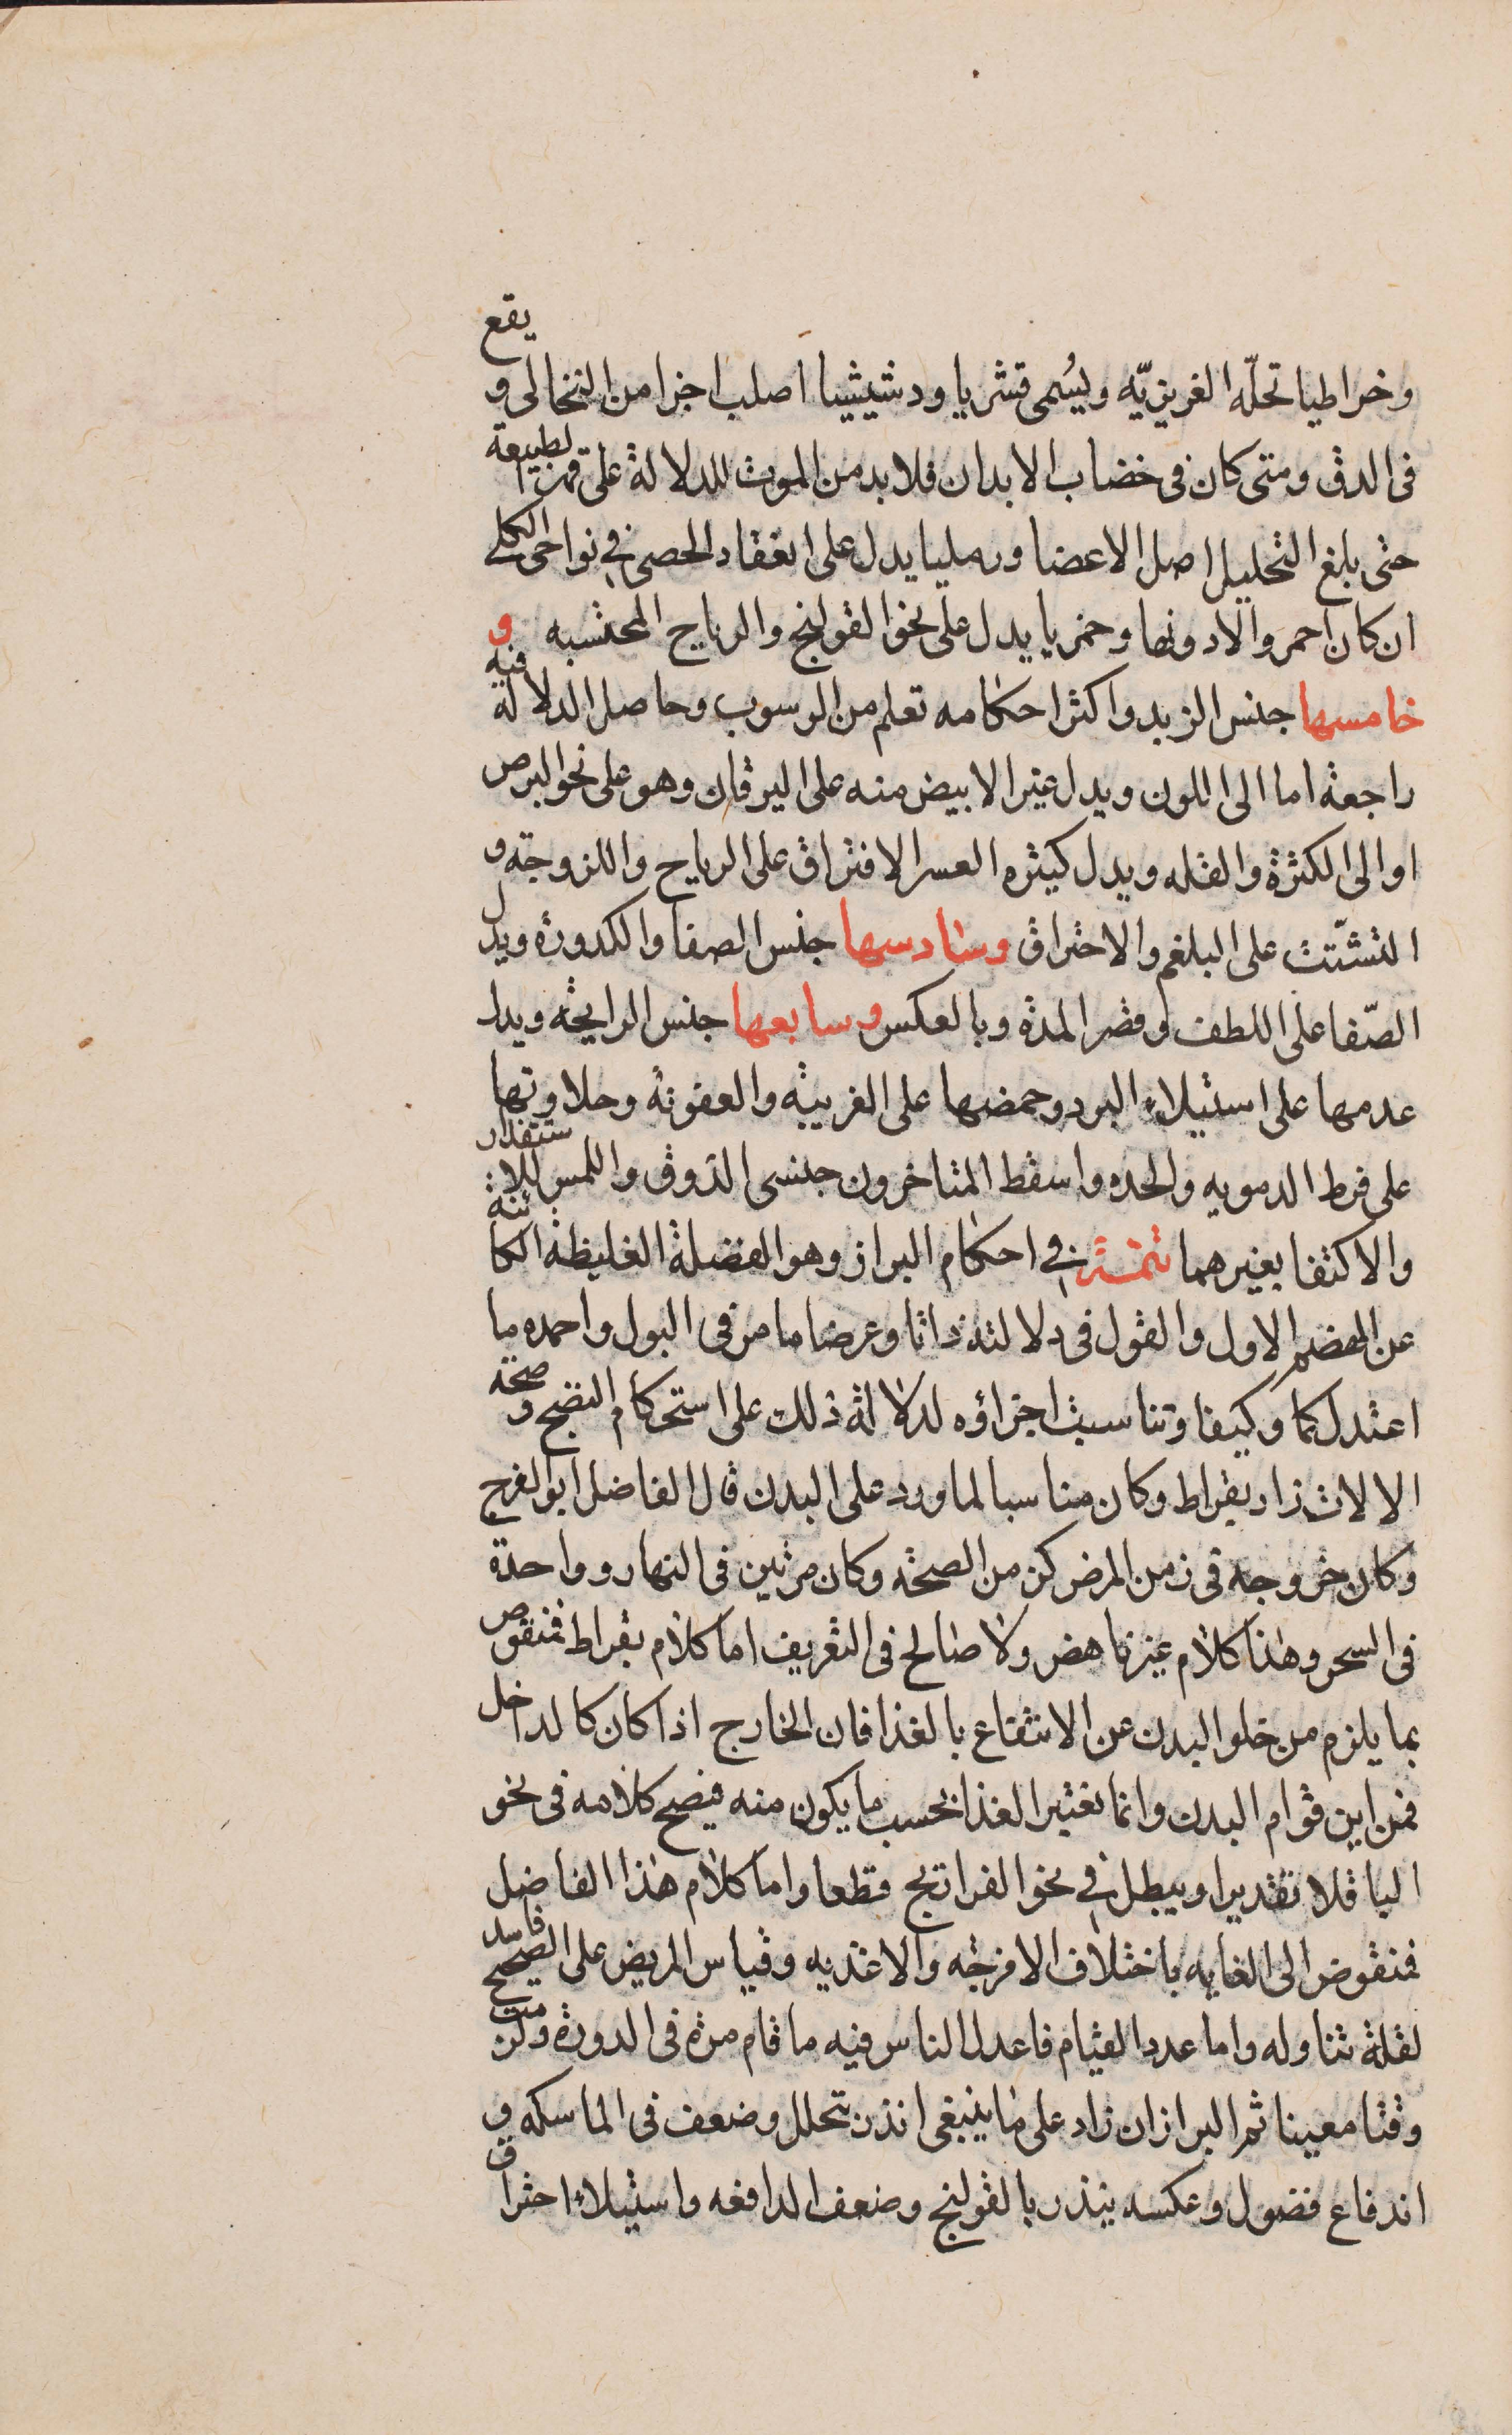 وخراطيا تحلّه الغريزيّه ويُسمى قشريا ودشيشيا اصلب اجزا من النخالى و يقع
فى الدق ومتى كان فى خضاب الابدان فلا بد من الموت للدلالة على قهر الطبيعة
حتى بلغ التحليل اصل الاعضا ورمليا يدل على انعقاد الحصى فى نواحى الكلے
ان كان احمر والا دونها وخمريا يدل على نحو القولنج والرياح المحتسبه و
خامسها جنس الزبد واكثر احكامه تعلم من الرسوب وحاصل الدلالة فيه
راجعة اما الى اللون ويدل غير الابيض منه على اليرقان وهو على نحو البرص
او الى الكثرة والقله ويدل كثيره العسر الافتراق على الرياح واللزوجة و
التشتّت على البلغم والاحتراق وسادسها جنس الصفا والكدورة ويدل
الصّفا على اللطف وقصر المدة وبالعكس وسابعها جنس الرايحة ويدل
عدمها على استيلاء البرد وحمضها على الغريبة والعفونة وحلاوتها
على فرط الدمويه والحده واسقط المتاخرون جنسى الذوق واللمس للاستقذار
والاكتفا بغيرهما تتمة فى احكام البراز وهو الفضلة الغليظة الكائنة
عن الهضم الاول والقول فى دلالته ذاتا وعرضا ما مر فى البول واحمده ما
اعتدل كما وكيفا وتناسبت اجزاؤه لدلالة ذلك على استحكام النضج و صحة
الالات زاد بقراط وكان مناسبا لما ورد على البدن قال الفاضل ابو الفرج
وكان خروجه فى زمن المرض كزمن الصحة وكان مرتين فى النهار وواحدة
فى السحر وهذا كلام غير ناهض ولا صالح فى التعريف اما كلام بقراط فمنقوص
بما يلزم من خلو البدن عن الانتفاع بالغذا فان الخارج اذا كان كالداخل
فمن اين قوام البدن وانما نعتبر الغذا بحسب ما يكون منه فيصح كلامه فى نحو
الباقلا تقديرا ويبطل فى نحو الفراتج قطعا واما كلام هذا الفاضل
فمنقوض الى الغايه باختلاف الامزجه والاغذيه وقياس المريض على الصحيح فاسد
لقلة تناوله واما عدد القيام فاعدل الناس فيه ما قام مرة فى الدورة ولزمت
وقتا معينا ثم البراز ان زاد على ما ينبغى انذر بتحلل وضعف فى الماسكه و
اندفاع فضول وعكسه ينذر بالقولنج وضعف الدافعه واستيلاء احتراق